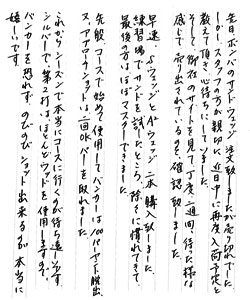 先日ボンバのサンドウェッジ注文致しましたが売り切れでした
しかしスタッフの方が親切に近日中に再度入荷予定と
教えて頂き心待ちにしていました。
そして御社のサイトを見て丁度一週間、待った様な
感じで発売されているのを確認致しました。
早速、SウェッジとAウェッジ二本購入致しました。
練習場でサンドを試したところ除々に慣れてきて、
最後の方はほぼマスターできました。
先般コースで始めて使用してバンカーは100パーセント脱出、
又、アプローチショットは二回OKパーを取れました。
これからシーズンで本当にコースに行くのが待ち遠しいです。
シルバーで、第2打はほとんどウッドを使用します。
バンカーを恐れず、のびのびショット出来るのが本当に
嬉しいです。